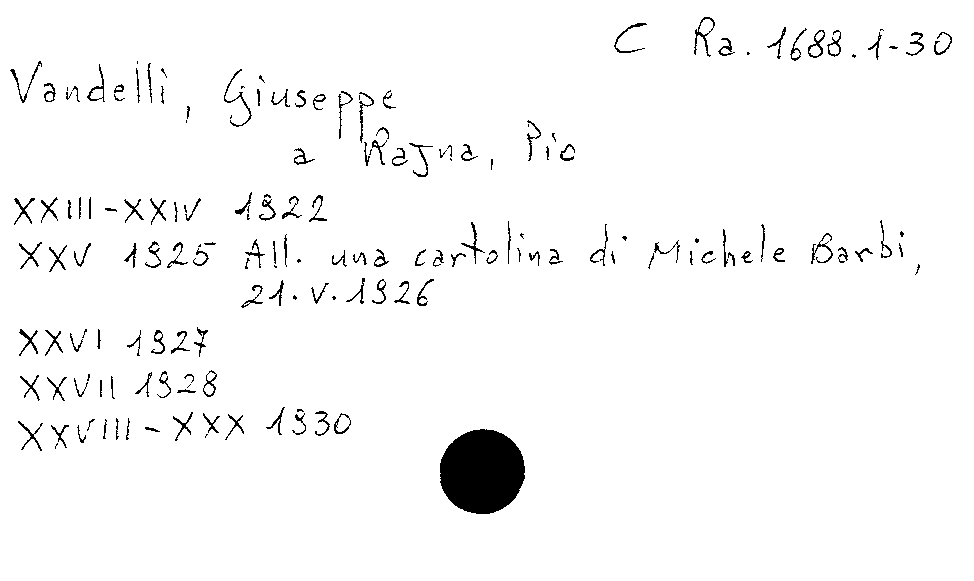 C Ra. 1688.1-30
Vandelli, Giuseppe
a Rajna, Pio
XXIII-XXIV 1922
XXV 1925 All. una cartolina di Michele Barbi,
21.V.1926
XXVI 1927
XXVII 1928
XXVIII-XXX 1930